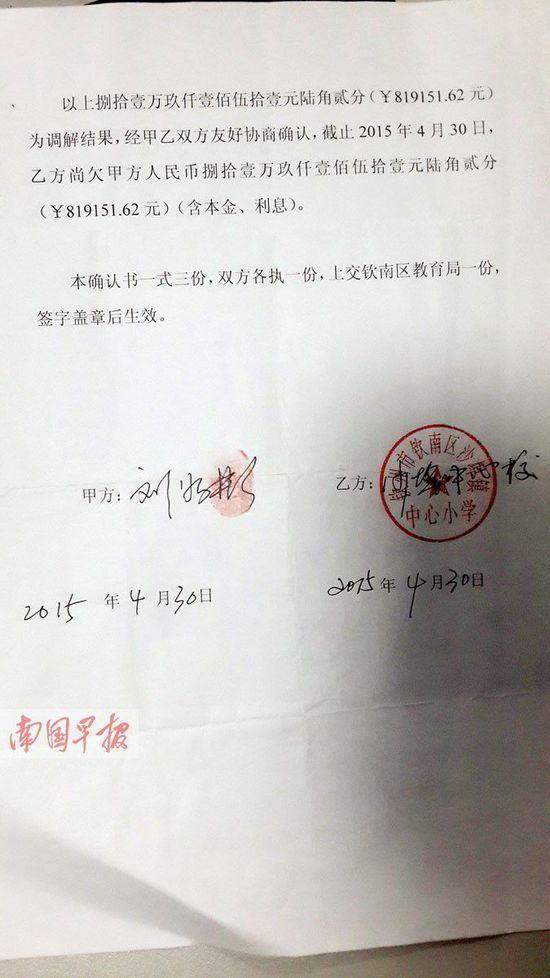 以上捌拾壹万玖仟壹佰伍拾壹元陆角贰分（￥819151.62元）
为调解结果，经甲乙双方友好协商确认，截止2015年4月30日，
乙方尚欠甲方人民币捌拾壹万玖仟壹佰伍拾壹元陆角贰分
（￥819151.62元）（含本金、利息）。
本确认书一式三份，双方各执一份，上交钦南区教育局一份，
签字盖章后生效。
甲方：刘
乙方：
市钦南区沙 镇
中心小学
2015年4月30日
2015年4月30日
南国早报